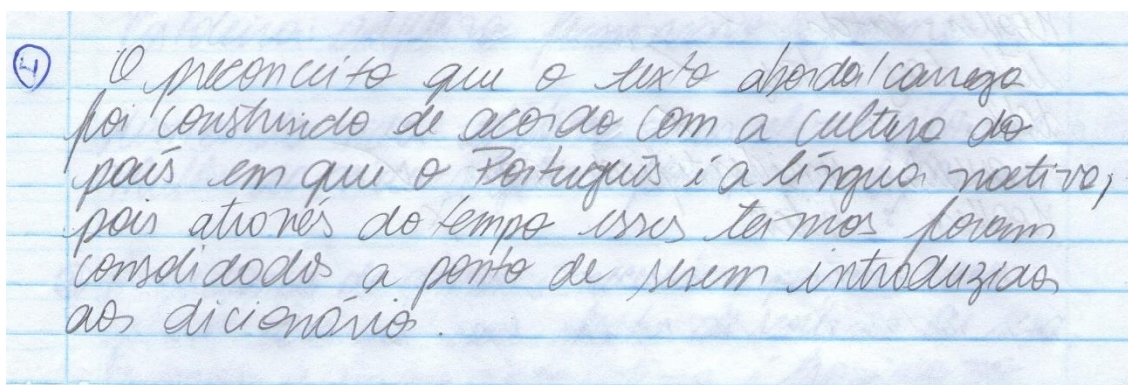 4
O preconceito que o texto aborda/carrega
foi construido de acordo com a cultura do
país em que o Português é a língua nativa,
pois através do tempo esses termos foram
consolidados a ponto de serem introduzidos
aos dicionário.